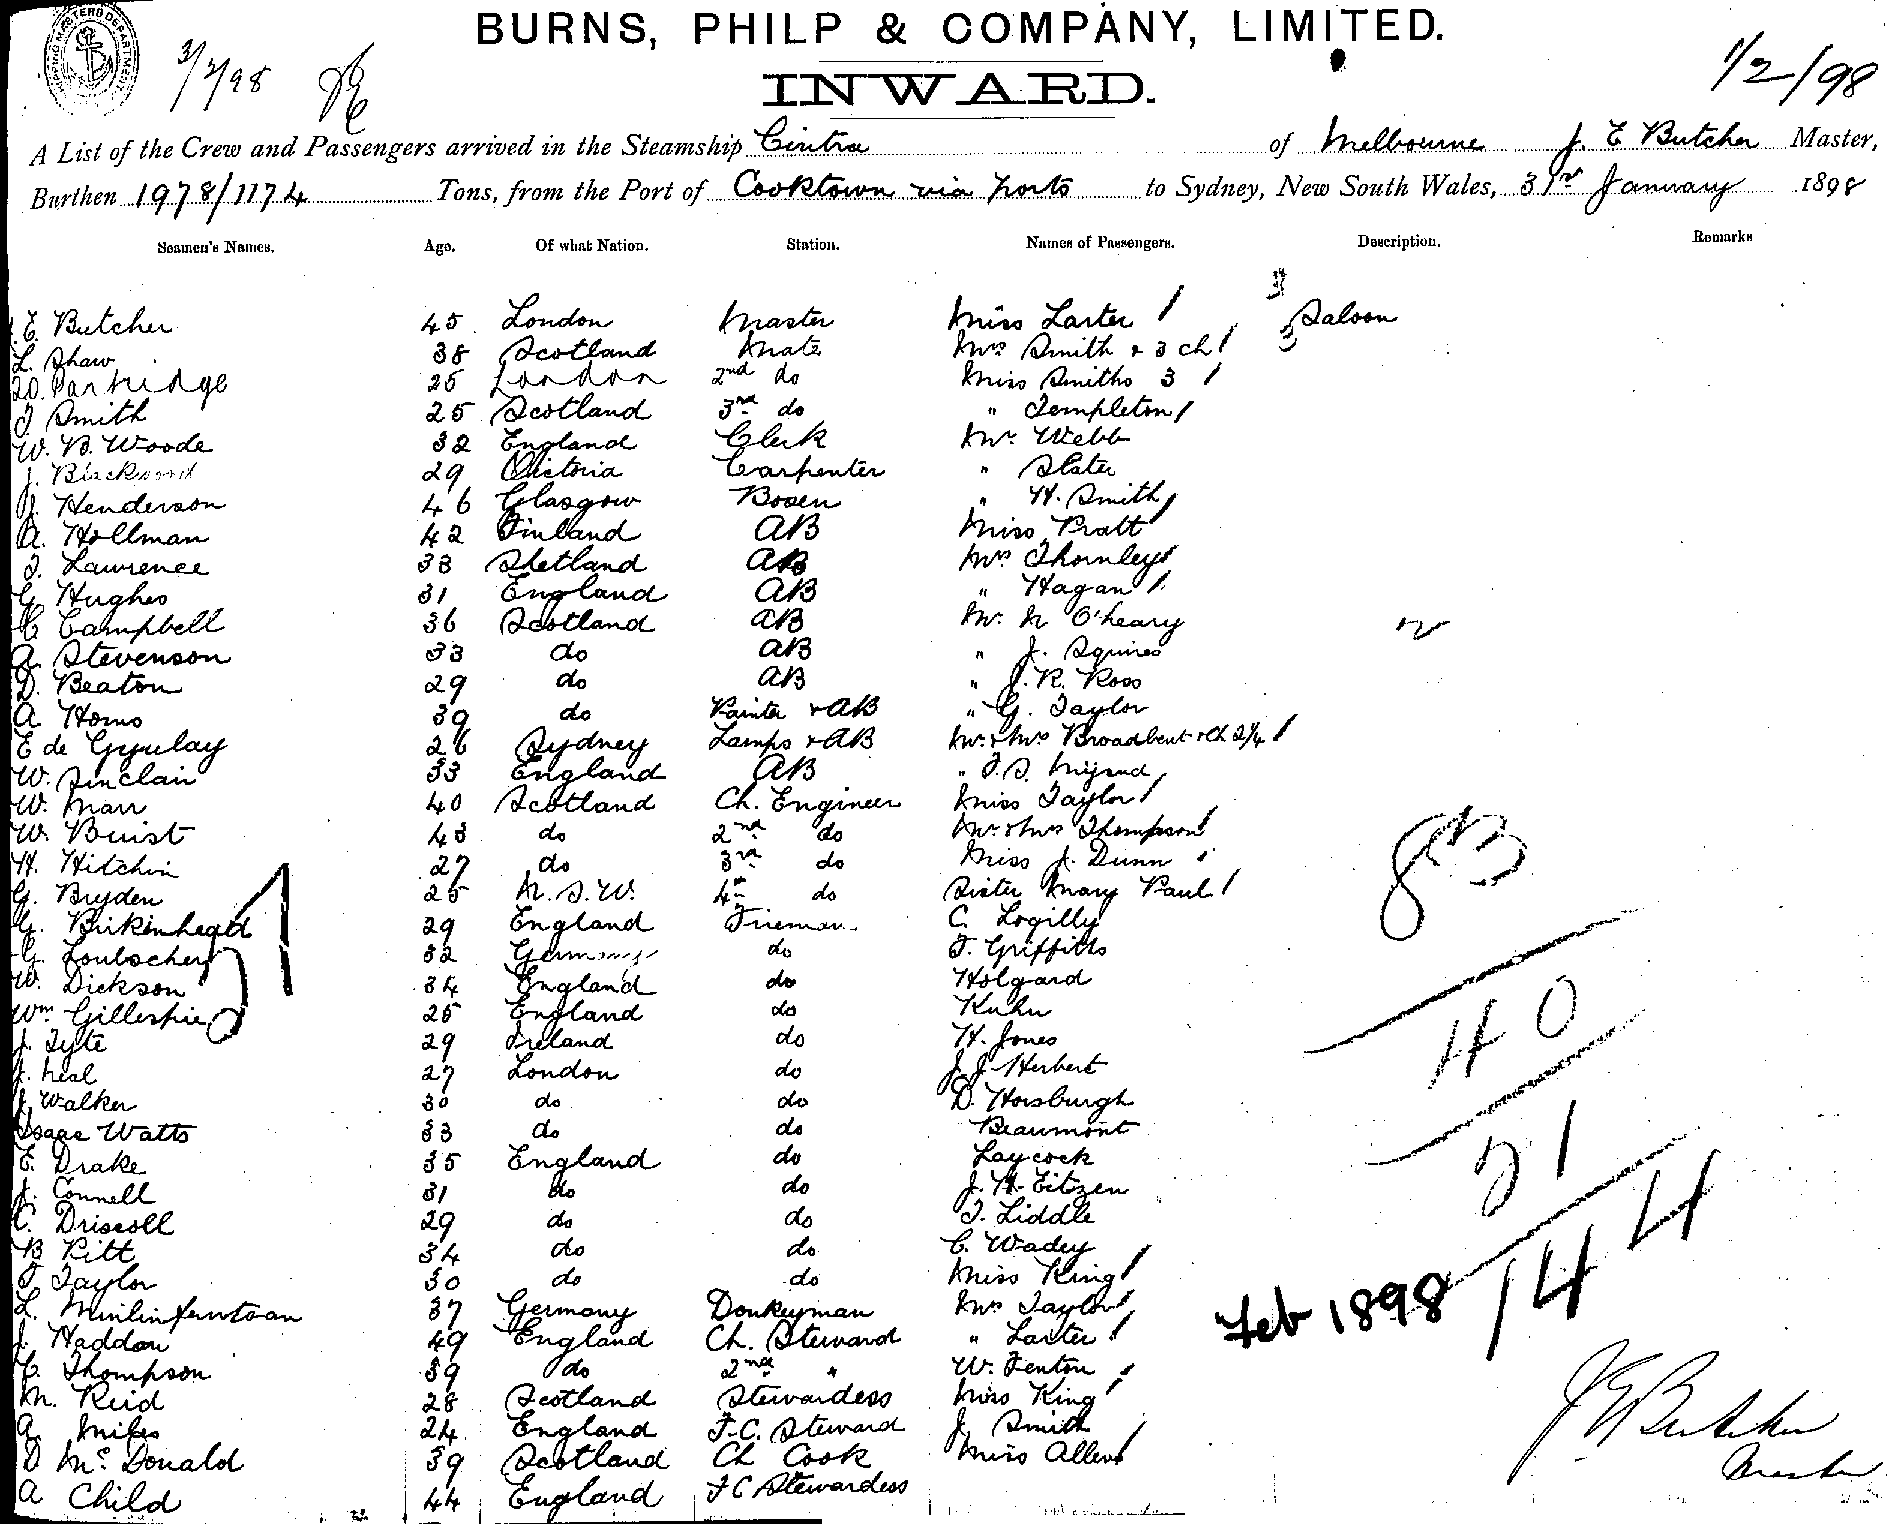 BURNS, PHILP & COMPANY, LIMITED.
3/2/98
1/2/98
INWARD.
A List of the Crew and Passengers arrived in the Steamship Cintra of Melbourne J. E Butcher Master,
Burthen 1978/1174 Tons, from the Port of Cooktown via ports to Sydney, New South Wales, 31st January 1898
Seamen's Names. Age. Of what Nation. Station. Names of Passengers. Description. Remarks
E. Butcher 45 London Master Miss Larter Saloon
L. Shaw 38 Scotland Mate Mrs Smith & 3 ch
Partridge 25 London 2nd do Miss Smiths 3
J Smith 25 Scotland 3rd do " Templeton
W. B. Woode 32 England Clerk Mr. Webb
J. Blackwood 29 Victoria Carpenter " Slater
J. Henderson 46 Glasgow Bosen " H. Smith
A. Hollman 42 Finland AB Miss Pratt
J. Lawrence 33 Shetland AB Mrs Thornley
G. Hughes 31 England AB " Hagan
C Campbell 36 Scotland AB Mr. N O'heary
A. Stevenson 33 do AB " J. Squires
D. Beaton 29 do AB " J. R. Ross
A Homs 39 do Painter & AB " G. Taylor
E de Gyulay 26 Sydney Lamps & AB Mr. & Mrs Broadbent & Ch 2/4
W. Sinclair 33 England AB " J. S.
W. Marr 40 Scotland Ch. Engineer Miss Taylor
W. Buist 43 do 2nd do Mr & Mrs Thompson
H. Hitchin 27 do 3rd do Miss J. Dunn
G. Bryden 25 N. S. W. 4th do Sister Mary Paul
G. Birkenhead 29 England Fireman C. Logilly
G. Loubscher 32 Germany do F. Griffiths
W. Dickson 34 England do Holgard
Wm Gillespie 25 England do Kuhn
J. Tyte 29 Ireland do H. Jones
J. Neal 27 London do J. J Herbert
J. Walker 30 do do D. Horsburgh
Isaac Watts 33 do do Beaumont
E. Drake 35 England do Laycock
J. Connell 31 do do J. H. Eitzen
C. Driscoll 29 do do J. Liddle
B Pitt 34 do do C. Wadey
T Taylor 30 do do Miss King
L. 37 Germany Donkeyman Mrs Taylor
J. Haddon 49 England Ch. Steward " Larter
C. Thompson 39 do 2nd " W. Fenton
M. Reid 28 Scotland Stewardess Miss King
A. Miles 24 England F. C. Steward J. Smith
D McDonald 39 Scotland Ch Cook Miss Allen
A Child 44 England F C Stewardess
51
83
40
21
144
Feb 1898
J E Butcher
Master